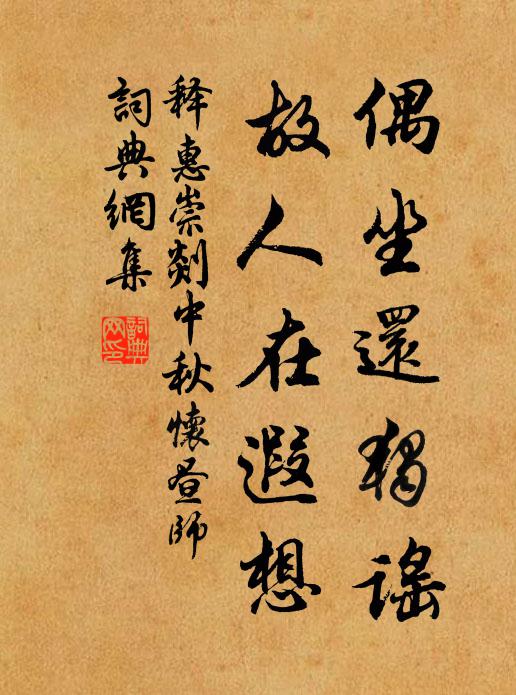 偶坐還獨謡
故人在遐想
释惠崇剡中秋懷昼師
詞典網集
詞典
网印